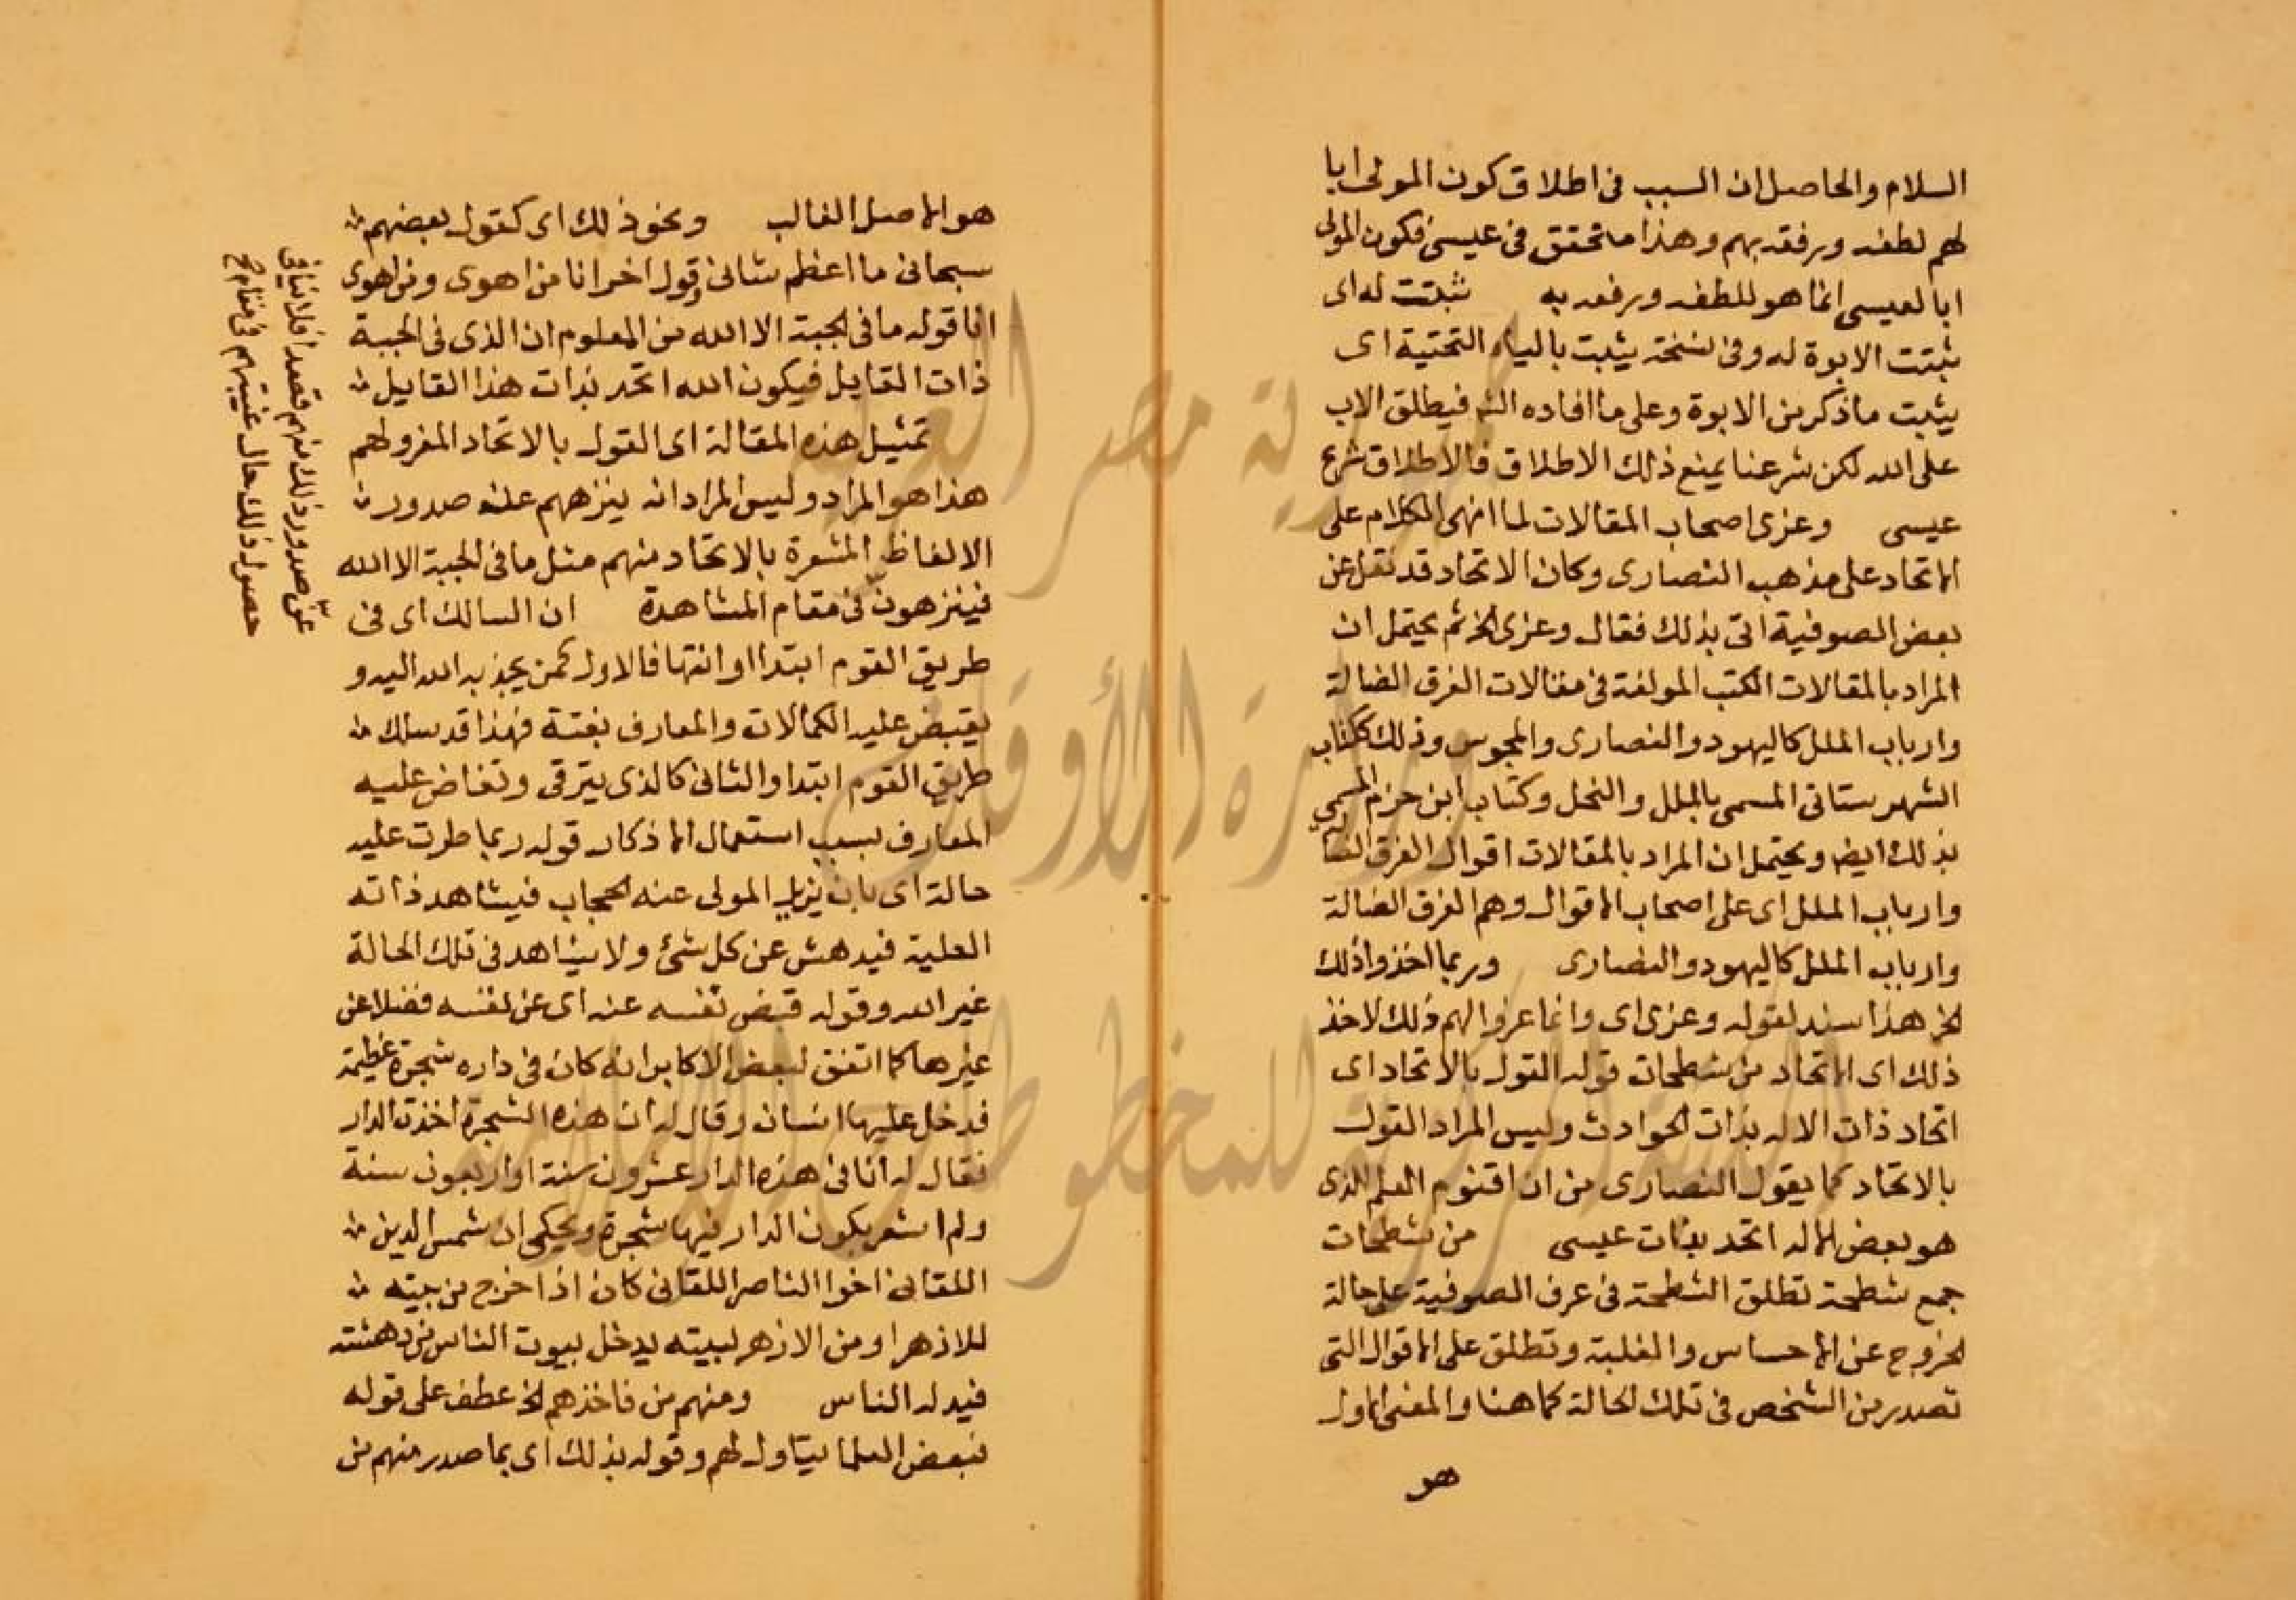 السلام والحاصل ان السبب فى اطلاق كون المولى ابا
لهم لطفه ورفقه بهم وهذا متحقق فى عيسى فكون المولى
ابا لعيسى انما هو للطفه ورفقه به ثبتت له اى
ثبتت الابوة له وفى نسخة يثبت بالياء التحتية اى
يثبت ماذكر من الابوة وعلى ما افاده الش فيطلق الاب
على الله لكن شرعنا يمنع ذلك الاطلاق فالاطلاق شرع
عيسى وعزى اصحاب المقالات لما انهى الكلام على
الاتحاد على مذهب النصارى وكان الاتحاد قد نقل عن
بعض الصوفية اتى بذلك فقال وعزى الخ ثم يحتمل ان
المراد بالمقالات الكتب المولفة فى مقالات الفرق الضالة
وارباب الملل كاليهود والنصارى والمجوس وذلك ككتاب
الشهرستانى المسمى بالملل والنحل وكتاب ابن حزم المسمى
بذلك ايضا ويحتمل ان المراد بالمقالات اقوال الفرق الضالة
وارباب الملل اى على اصحاب الاقوال وهم الفرق الضالة
وارباب الملل كاليهود والنصارى وربما اخذوا ذلك
الخ هذا سند لقوله وعزى اى وانما عزوا لهم ذلك لاخذ
ذلك اى الاتحاد من شطحات قوله القول بالاتحاد اى
اتحاد ذات الاله بذات الحوادث وليس المراد القول
بالاتحاد كما يقول النصارى من ان اقنوم العلم الذى
هو بعض الاله اتحد بذات عيسى من شطحات
جمع شطحة تطلق الشطحة فى عرف الصوفية على حالة
الخروج عن الاحساس والغلبة وتطلق على الاقوال التى
تصدر من الشخص فى تلك الحالة كما هنا والمعنى الاول
هو
هو الاصل الغالب ونحو ذلك اى كقول بعضهم
سبحانى ما اعظم شانى وقول اخر انا من اهوى ومن اهوى
انا قوله ما فى الجبة الا الله من المعلوم ان الذى فى الجبة
ذات القايل فيكون الله اتحد بذات هذا القايل
تمثيل هذه المقالة اى القول بالاتحاد المعزو لهم
هذا هو المراد وليس المراد انه ينزههم عن صدور
الالفاظ المشعرة بالاتحاد منهم مثل ما فى الجبة الا الله
فينزهون فى مقام المشاهدة ان السالك اى فى
طريق القوم ابتدا او انتها فالاول كمن يجذبه الله اليه و
يقبض عليه الكمالات والمعارف بغتة فهذا قد سلك
طريق القوم ابتدا والثانى كالذى يترقى وتفاض عليه
المعارف بسبب استعمال الاذكار قوله ربما طرت عليه
حالة اى بان يزيل المولى عنه الحجاب فيشاهد ذاته
العلية فيدهش عن كل شئ ولا يشاهد فى تلك الحالة
غير الله وقوله نفسه عنه اى عن نفسه فضلا عن
غيرها كما اتفق لبعض الاكابر انه كان فى داره شجرة عظيمة
فدخل عليها انسان وقال له ان هذه الشجرة اخذت الدار
فقال له انا فى هذه الدار عشرون سنة او اربعون سنة
ولم اشعر بكون الدار فيها شجرة ويحكى ان شمس الدين
اللقانى اخوا الناصر اللقانى كان اذا خرج من بيته
للازهر او من الازهر لبيته يدخل بيوت الناس من دهشته
فيدله الناس ومنهم من فاخذهم الخ عطف على قوله
فبعض العلما يتاول لهم وقوله بذلك اى بما صدر منهم من
عن صدور ذلك منهم قصدا فلا ينافى
حصول ذلك حال غيبتهم فى مقام
جمهورية مصر العربية
وزارة الأوقاف
المكتبة المركزية للمخطوطات الإسلامية